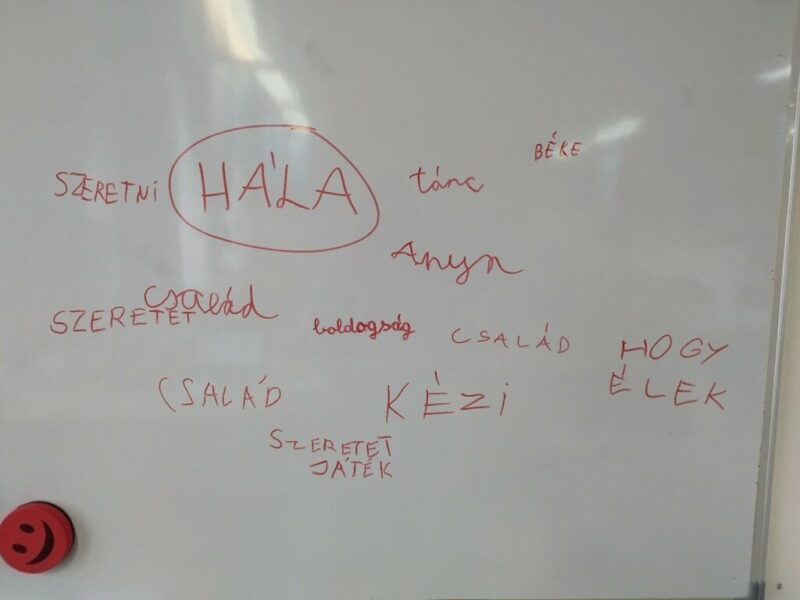 BÉKE
SZERETNI HÁLA tánc
Anya
család
SZERETET
boldogság CSALÁD HOGY
ÉLEK
CSALÁD KÉZI
SZERETET
JÁTÉK